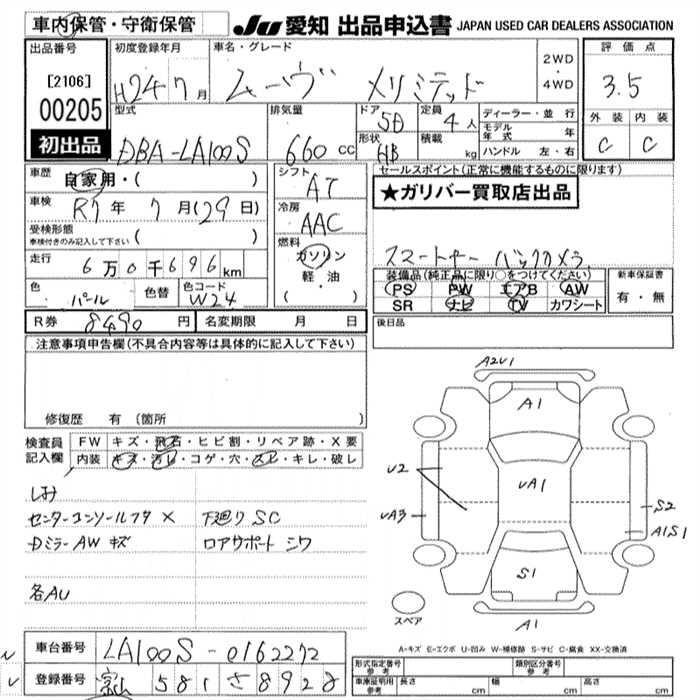 車内保管・守衛保管
JU 愛知 出品申込書 JAPAN USED CAR DEALERS ASSOCIATION
出品番号
[2106]
00205
初出品
初度登録年月
H24 7月
車名・グレード
ムーヴ Xリミテッド
2WD
・
4WD
評価点
3.5
外装 内装
C C
型式
DBA-LA100S
排気量
660 CC
ドア
5D
形状
HB
定員
4人
積載
kg
ディーラー・並行
モデル年式 年
ハンドル 左・右
車歴 自家用・( )
車検 R7年 7月(29日)
受検形態
車検付きのみ記入して下さい ( )
走行 6万0千696km
色 パール 色替 色コード W24
シフト
AT
冷房
AAC
燃料
ガソリン
軽・油
( )
セールスポイント(正常に機能するものに限ります)
★ガリバー買取店出品
スマートキー バックカメラ
装備品(純正品に限り○をつけてください)
PS PW エアB AW
SR ナビ TV カワシート
新車保証書
有・無
R券 8490 円 名変期限 月 日
後日品
注意事項申告欄(不具合内容等は具体的に記入して下さい)
修復歴 有 (箇所 )
検査員記入欄
FW キズ・飛石・ヒビ割・リペア跡・X要
内装 キズ・汚レ・コゲ・穴・スレ・キレ・破レ
しみ
センターコンソールフタ X 下廻り SC
Dミラー AW キズ ロアサポート シワ
各AU
A2U1
A1
U2
UA1
UA3
S2
A1S1
S1
スペア
A1
A-キズ E-エクボ U-凹み W-補修跡 S-サビ C-腐食 XX-交換済
車台番号 LA100S-0162272
登録番号 富山 581 58928
形式指定番号
参考
類別区分番号
参考
車庫証明用
参考
長さ cm 幅 cm 高さ cm